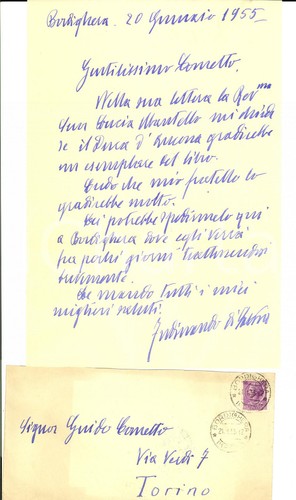 Bordighera. 20 Gennaio 1955
Gentilissimo Cometto,
Nella sua lettera la Rev.ma
Suor Lucia Mantello mi chiede
se il Duca d'Ancona gradirebbe
un esemplare del libro.
Credo che mio fratello lo
gradirebbe molto.
Lei potrebbe spedirmelo qui
a Bordighera dove egli verrà
fra pochi giorni trattenendosi
brevemente.
Le mando tutti i miei
migliori saluti.
Ferdinando di Savoia
Signor Guido Cometto
Via Verdi 7
Torino